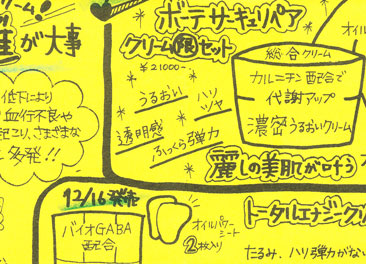 クリーム
が大事
低下により
血行不良や
こり、さまざまな
多発!!
ボーテサーキュリペア
クリーム限セット
¥21000-
うるおい
ハリ
ツヤ
透明感
ふっくら弾力
オイル
総合クリーム
カルニチン配合で
代謝アップ
濃密うるおいクリーム
麗しの美肌が叶う
12/16発売
バイオGABA
配合
オイルパワー
シート
2枚入り
トータルエナジークリ
たるみ、ハリ弾力がな